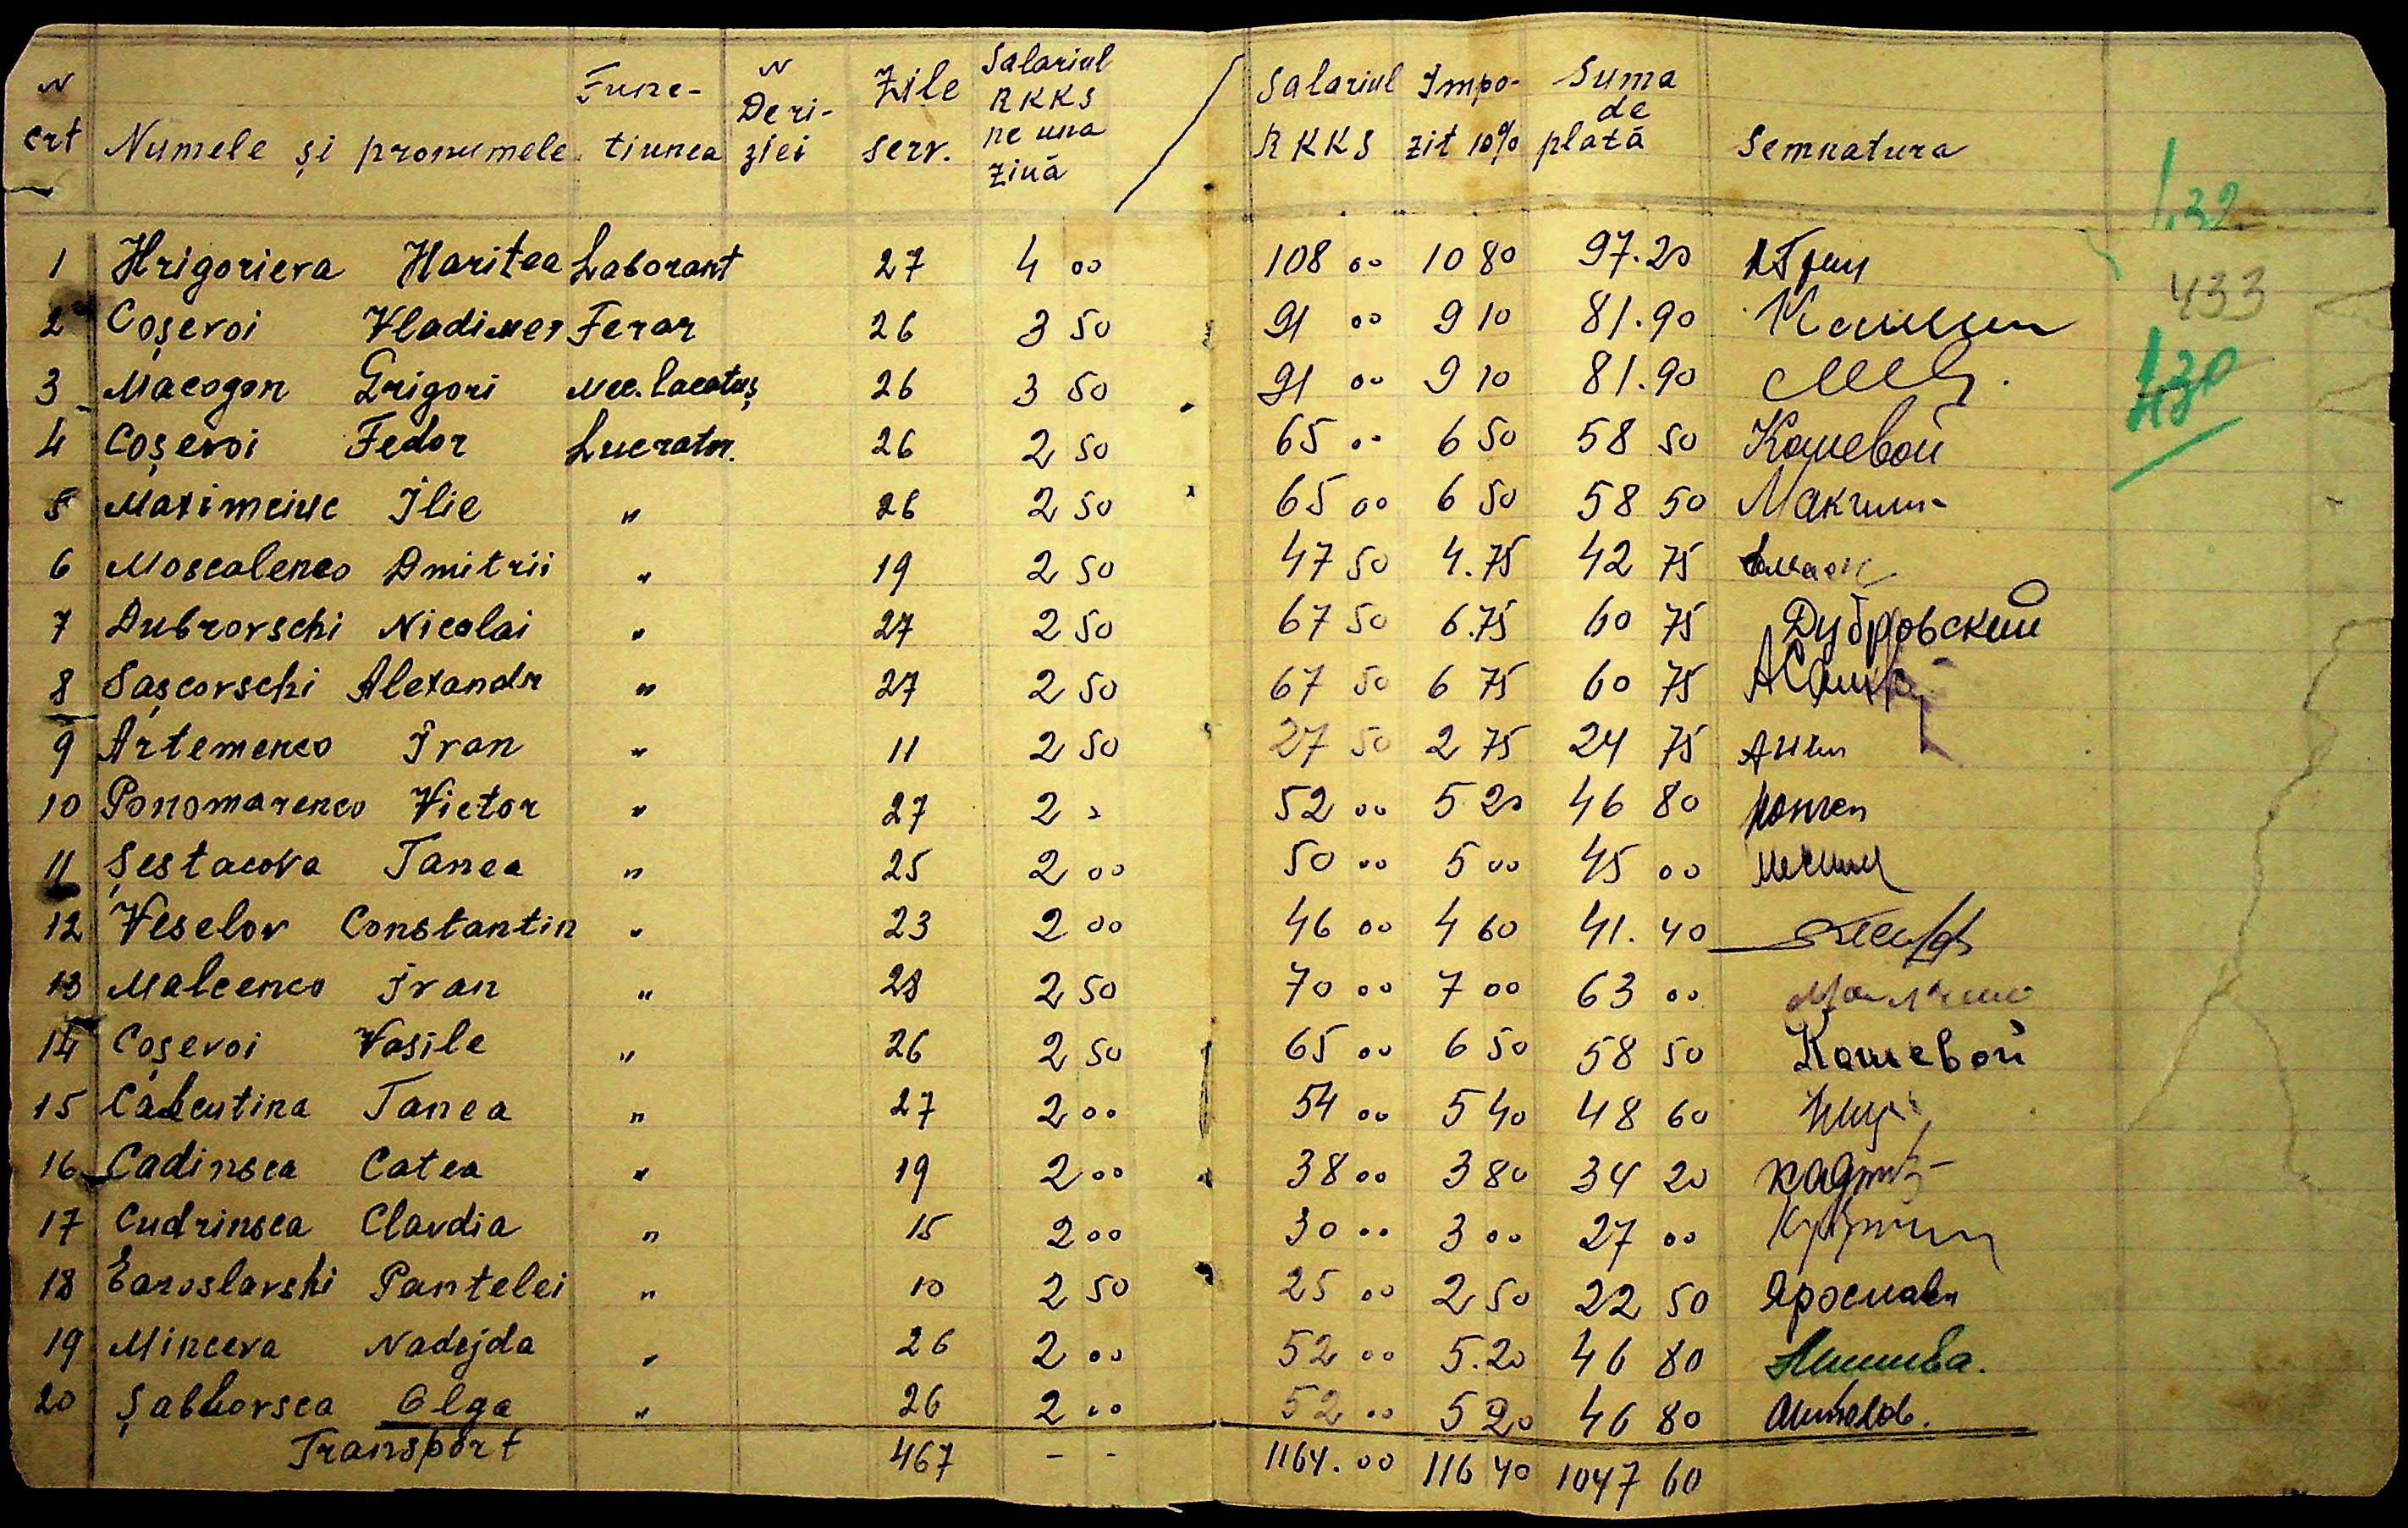 N crt Numele și pronumele Func-tiunea N Deri-ziei Zile serv. Salariul RKKS pe una ziuă / Salariul RKKS Impo-zit 10% Suma de plată Semnatura
132
1 Hrigorieva Haritea Laborant 27 4 00 108 00 10 80 97.20
433
2 Coșevoi Vladimer Ferar 26 3 50 91 00 9 10 81.90
3 Macogon Grigori Mec. lacatuș 26 3 50 91 00 9 10 81.90
430
4 Coșevoi Fedor Lucrator. 26 2 50 65 00 6 50 58 50 Кошевой
5 Maximciuc Ilie " 26 2 50 65 00 6 50 58 50
6 Moscalenco Dmitrii " 19 2 50 47 50 4.75 42 75
7 Dubrovschi Nicolai " 27 2 50 67 50 6.75 60 75 Дубровский
8 Sașcovschi Alexandr " 27 2 50 67 50 6 75 60 75
9 Artemenco Ivan " 11 2 50 27 50 2 75 24 75
10 Ponomarenco Victor " 27 2 52 00 5 20 46 80
11 Șestacova Tanea " 25 2 00 50 00 5 00 45 00
12 Veselov Constantin " 23 2 00 46 00 4 60 41.40
13 Malcenco Ivan " 28 2 50 70 00 7 00 63 00
14 Coșevoi Vasile " 26 2 50 65 00 6 50 58 50 Кошевой
15 Tanea " 27 2 00 54 00 5 40 48 60
16 Cadinsca Catea " 19 2 00 38 00 3 80 34 20
17 Cudrinsca Clavdia " 15 2 00 30 00 3 00 27 00
18 Earoslavski Pantelei " 10 2 50 25 00 2 50 22 50
19 Minceva Nadejda " 26 2 00 52 00 5.20 46 80
20 Olga " 26 2 00 52 00 5 20 46 80
Transport 467 - - 1164.00 116 40 1047 60